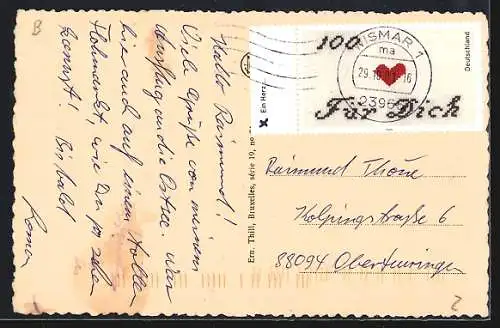 B
Hallo Raimund!
Viele Grüße von meinem
Ausflug an die Ostsee. War
hier auch auf einem tollen
Flohmarkt, wie Du ja sehen
kannst! Bis bald
Ern. Thill, Bruxelles, série 19, no
Ein Herz
100
Für Dich
Deutschland
WISMAR 1
ma
29.10.
2396
Raimund
Kolpingstraße 6
88094 Oberteuringen
2